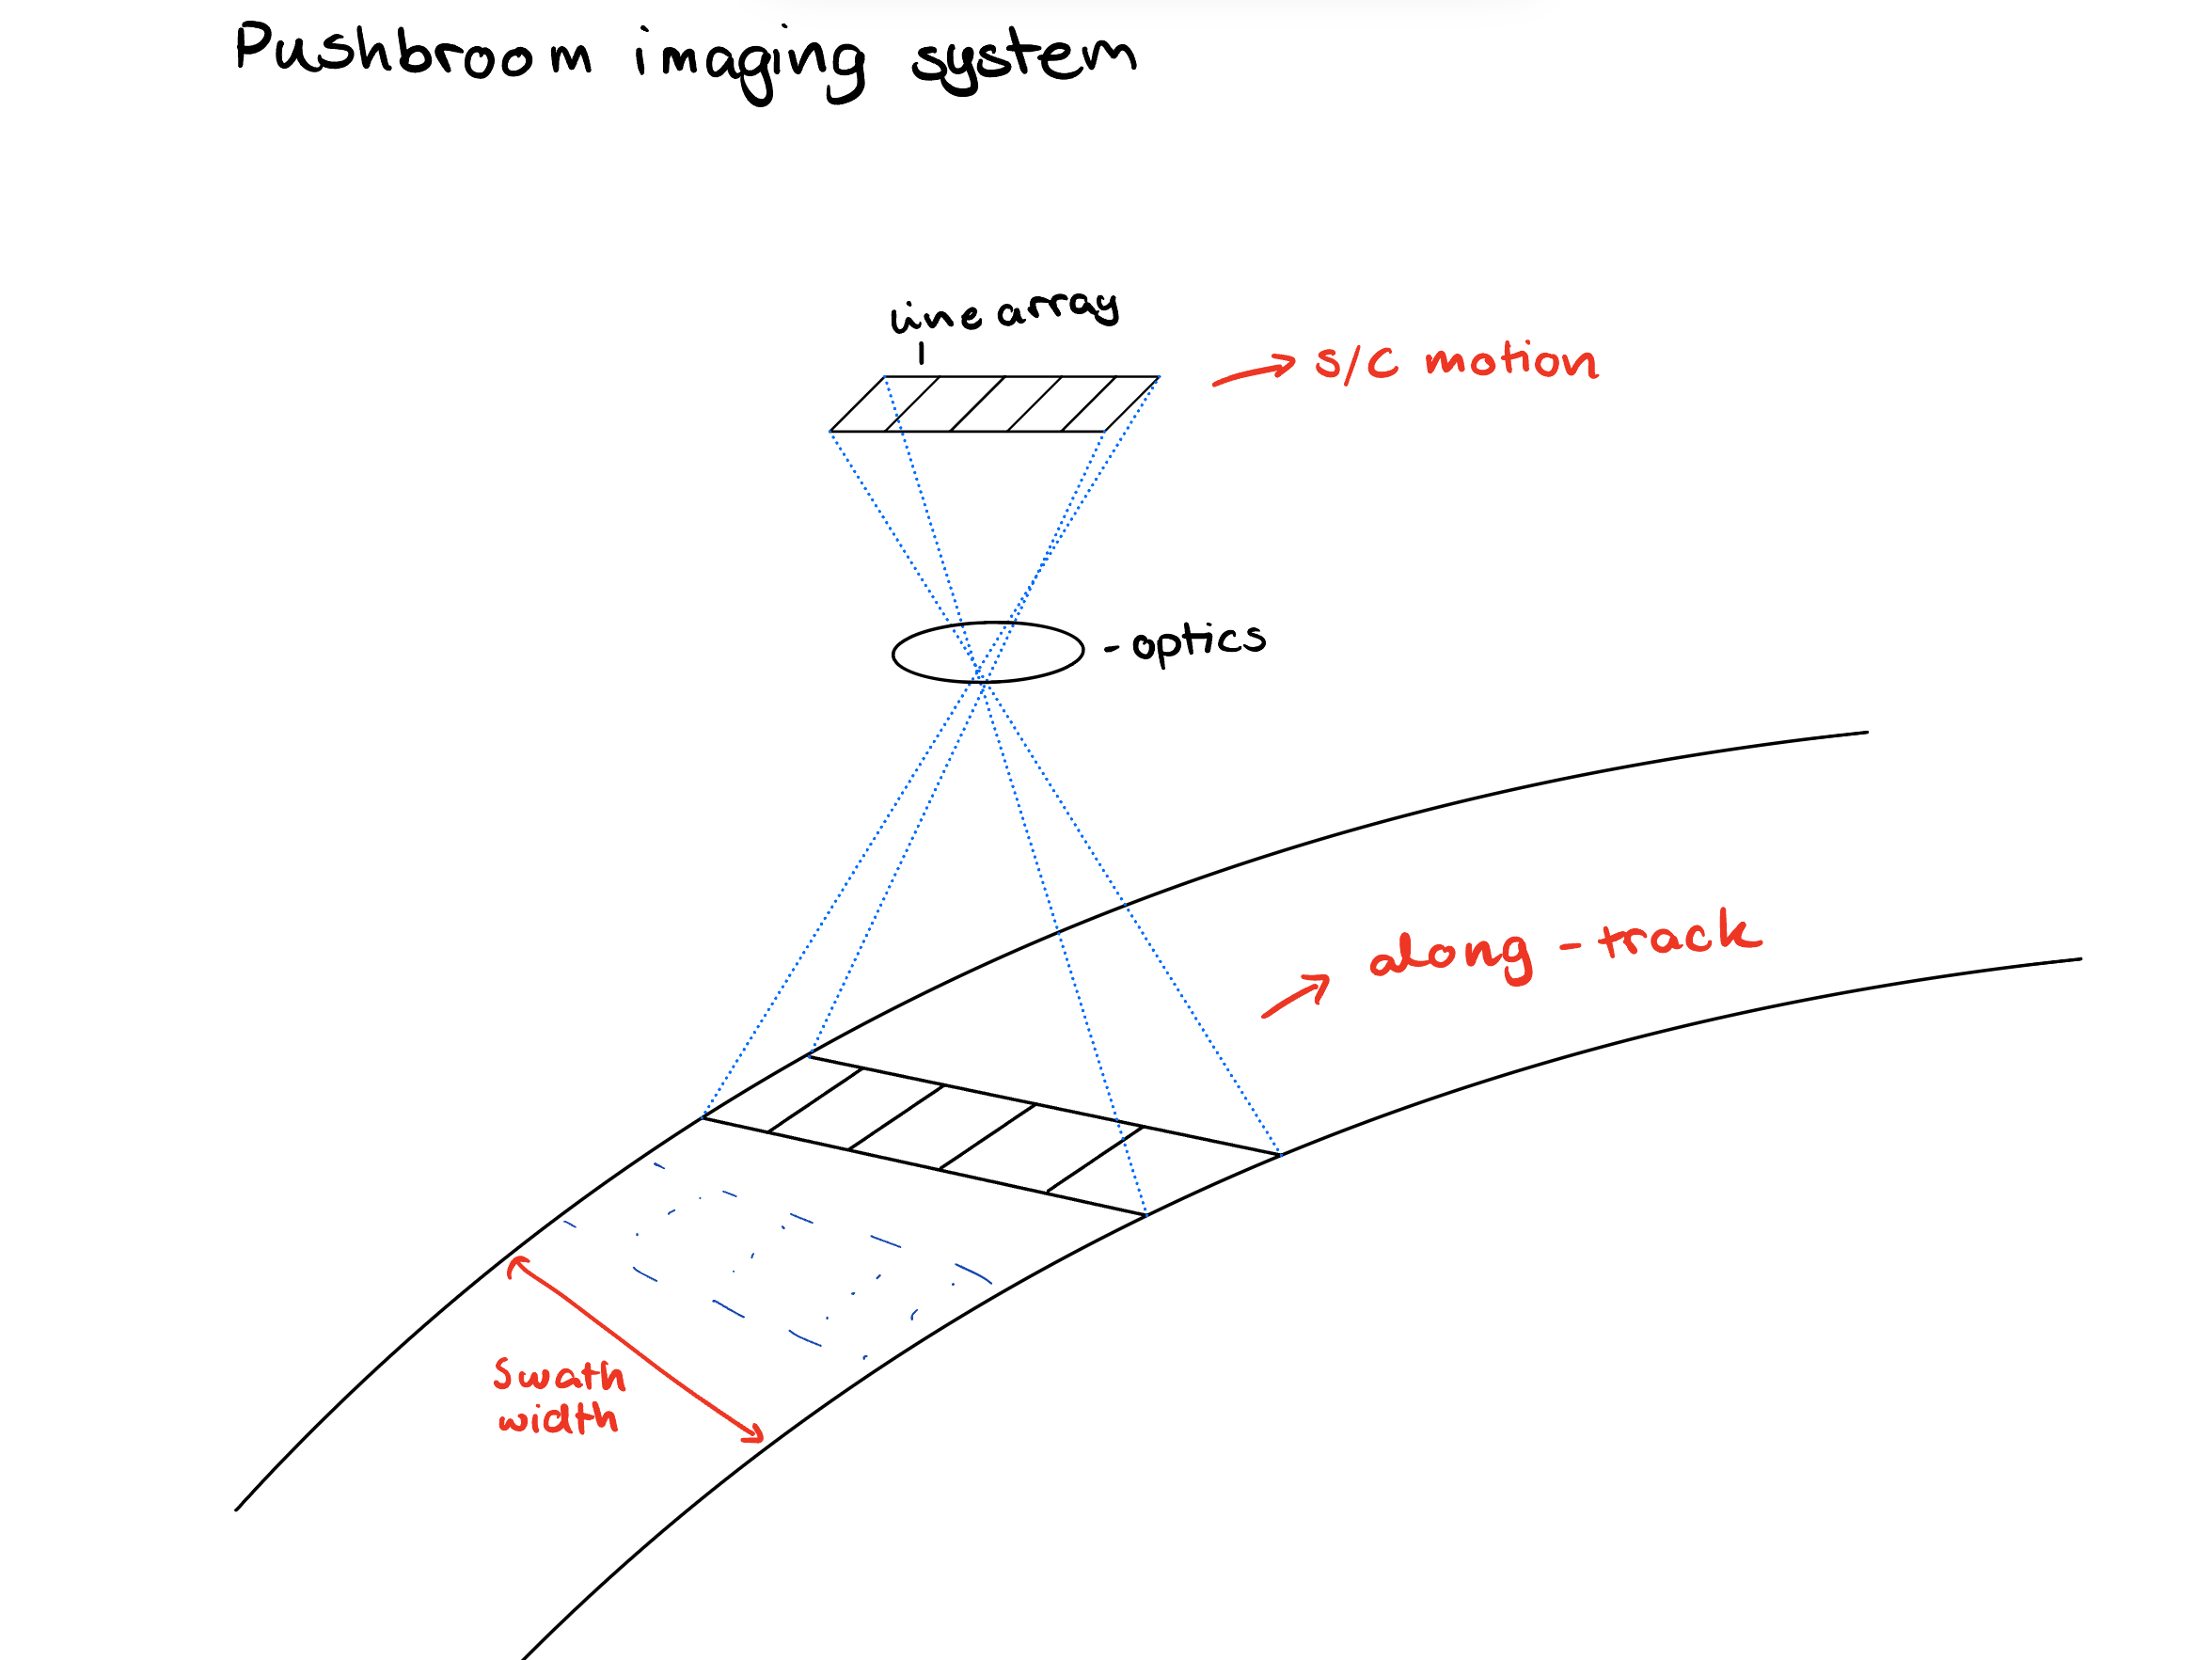 Pushbroom imaging system
line array
s/c motion
- optics
along-track
Swath
width